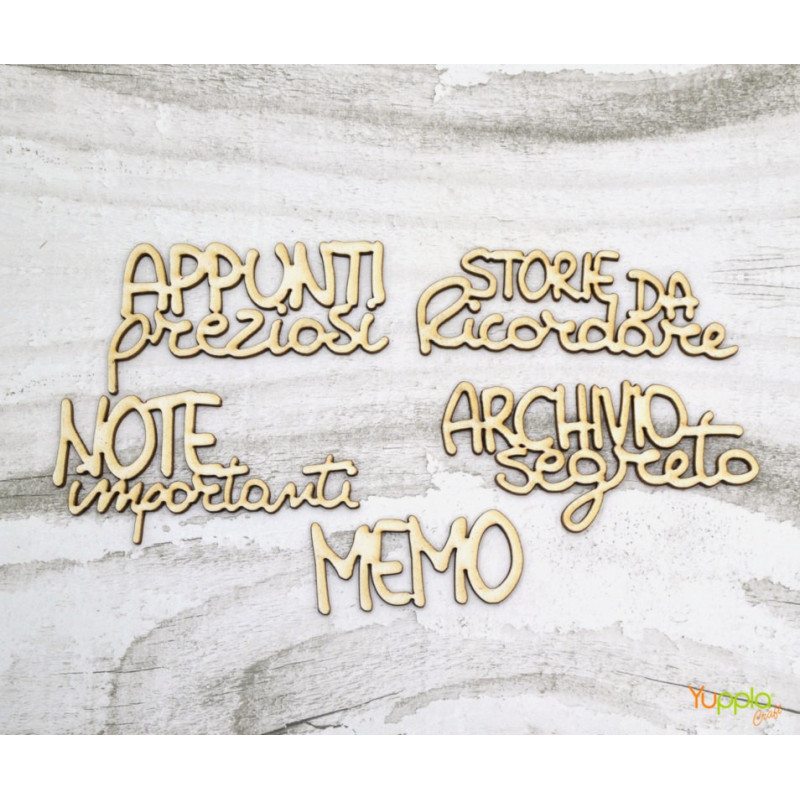 APPUNTI
preziosi
STORIE DA
Ricordare
NOTE
importanti
ARCHIVIO
segreto
MEMO
Yuppla
Craft